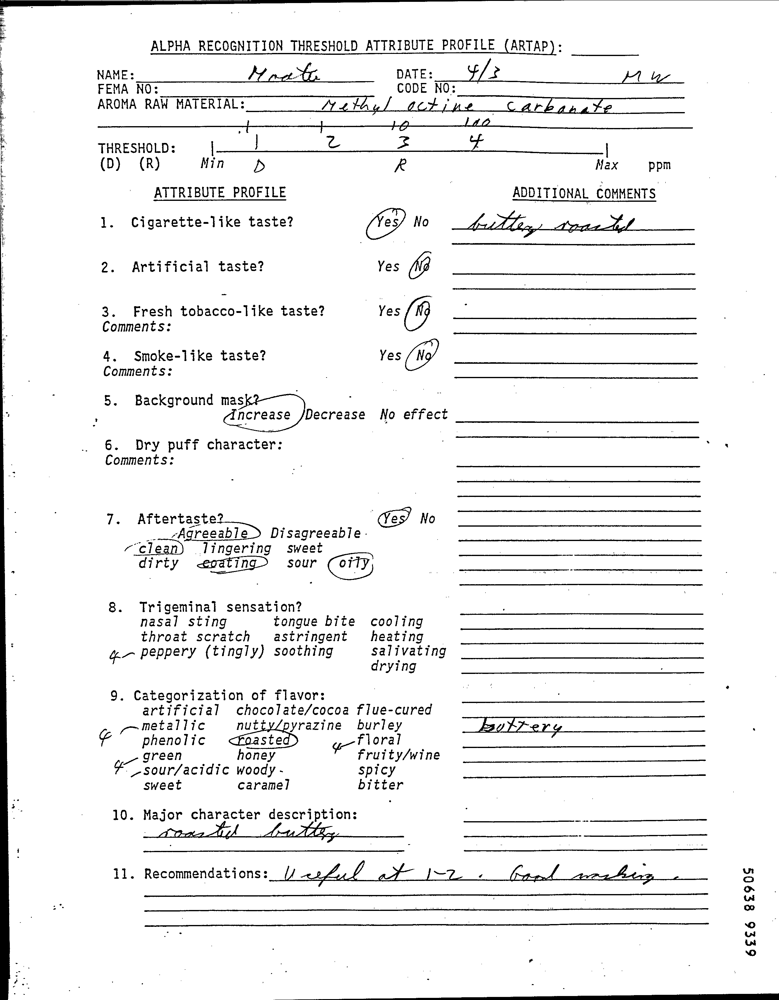 ALPHA RECOGNITION THRESHOLD ATTRIBUTE PROFILE (ARTAP):
NAME: DATE: 4/3 MW
FEMA NO: CODE NO:
AROMA RAW MATERIAL: Methyl octine carbonate
.1 1 10 100
THRESHOLD: 1 2 3 4
(D) (R) Min D R Max ppm
ATTRIBUTE PROFILE ADDITIONAL COMMENTS
1. Cigarette-like taste? Yes No buttery roasted
2. Artificial taste? Yes No
3. Fresh tobacco-like taste? Yes No
Comments:
4. Smoke-like taste? Yes No
Comments:
5. Background mask?
Increase Decrease No effect
6. Dry puff character:
Comments:
7. Aftertaste? Yes No
Agreeable Disagreeable
clean lingering sweet
dirty coating sour oily
8. Trigeminal sensation?
nasal sting tongue bite cooling
throat scratch astringent heating
4 peppery (tingly) soothing salivating
drying
9. Categorization of flavor:
artificial chocolate/cocoa flue-cured
metallic nutty/pyrazine burley buttery
4 phenolic roasted 4 floral
green honey fruity/wine
4 sour/acidic woody spicy
sweet caramel bitter
10. Major character description:
roasted buttery
11. Recommendations: Useful at 1-2. Good masking.
50638 9339